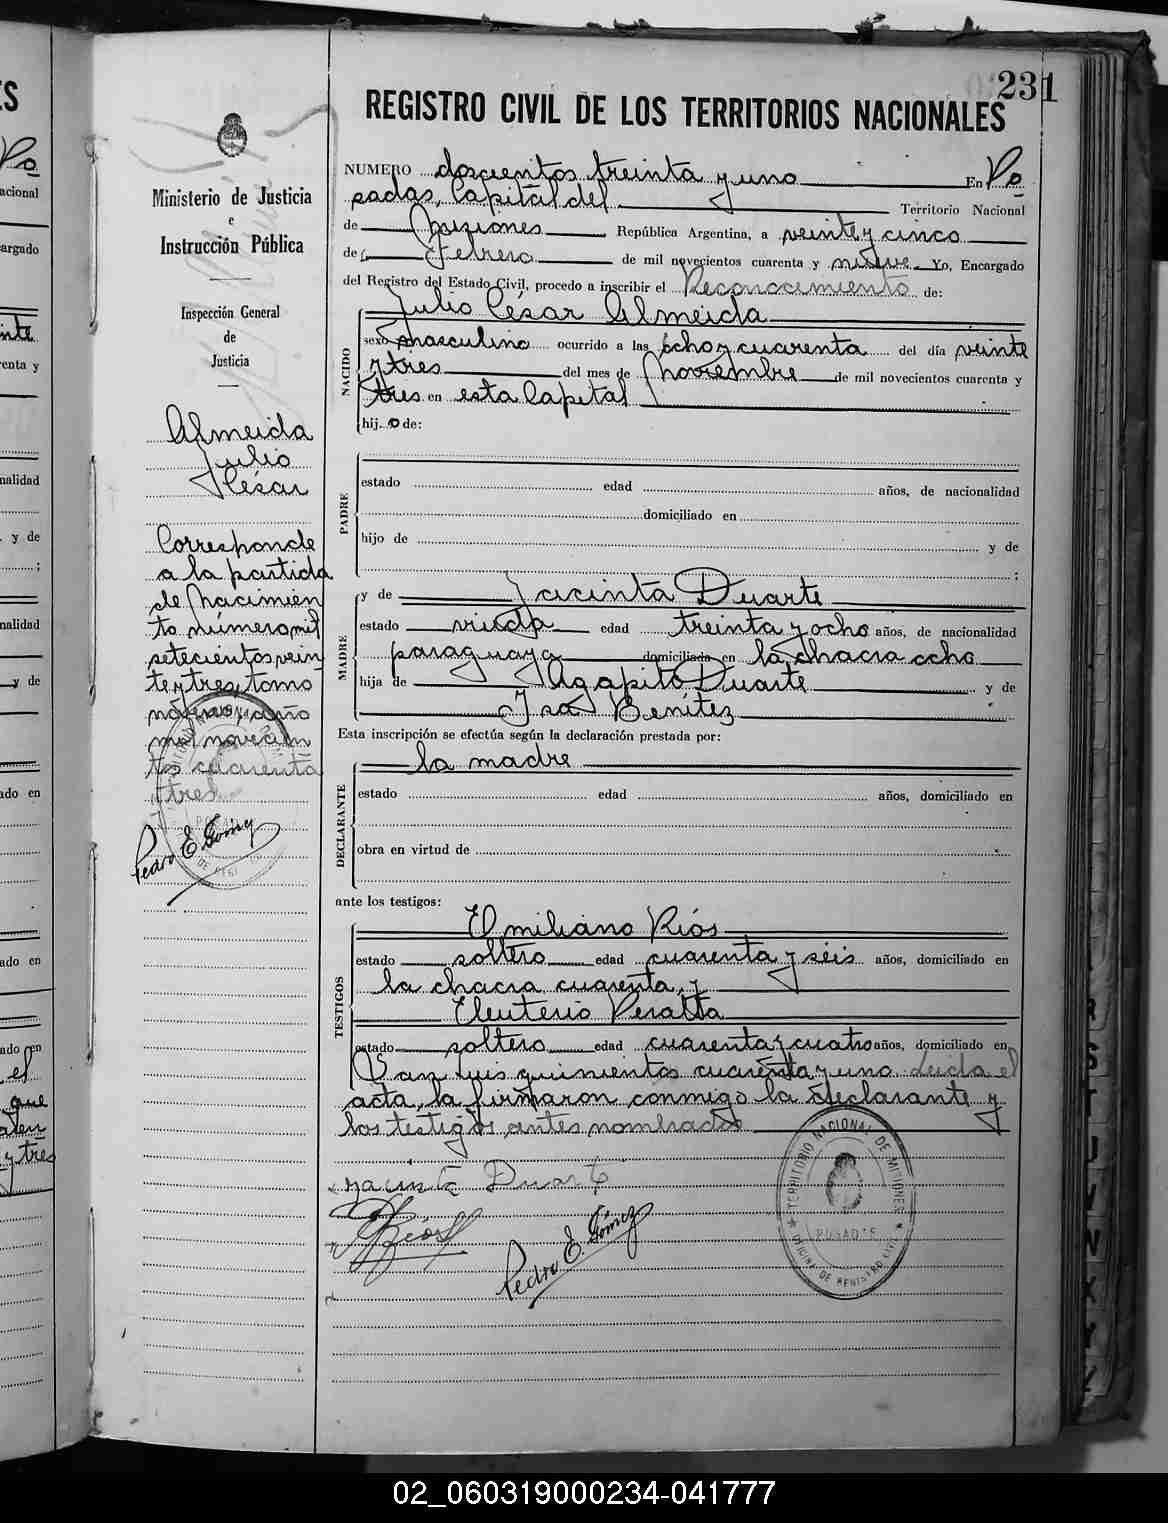 231
REGISTRO CIVIL DE LOS TERRITORIOS NACIONALES
Ministerio de Justicia
e
Instrucción Pública
Inspección General
de
Justicia
Almeida
Julio
César
Corresponde
a la partida
de Nacimien
to número mil
setecientos vein
te y tres, tomo
noveno, año
mil novecien
tos cuarenta
y tres
Pedro E. Gómez
NUMERO doscientos treinta y uno En Po
sadas, Capital del Territorio Nacional
de Misiones República Argentina, a veinte y cinco
de Febrero de mil novecientos cuarenta y nueve Yo, Encargado
del Registro del Estado Civil, procedo a inscribir el Reconocimiento de:
Julio César Almeida
NACIDO
sexo masculino ocurrido a las ocho y cuarenta del día veinte
y tres del mes de Noviembre de mil novecientos cuarenta y
tres en esta Capital
hijo de:
PADRE
estado edad años, de nacionalidad
domiciliado en
hijo de y de
;
MADRE
y de Jacinta Duarte
estado viuda edad treinta y ocho años, de nacionalidad
paraguaya domiciliada en la chacra ocho
hija de Agapito Duarte y de
Isa Benítez
Esta inscripción se efectúa según la declaración prestada por:
la madre
DECLARANTE
estado edad años, domiciliado en
obra en virtud de
ante los testigos:
TESTIGOS
Emiliano Ríos
estado soltero edad cuarenta y séis años, domiciliado en
la chacra cuarenta, y
Eleuterio Peralta
estado soltero edad cuarenta y cuatro años, domiciliado en
San Luis quinientos cuarenta y uno Leida el
acta, la firmaron conmigo la declarante y
los testigos antes nombrados
Jacinta Duarte
Ríos
Pedro E. Gómez
TERRITORIO NACIONAL DE MISIONES
POSADAS
OFICINA DE REGISTRO CIVIL
02_060319000234-041777